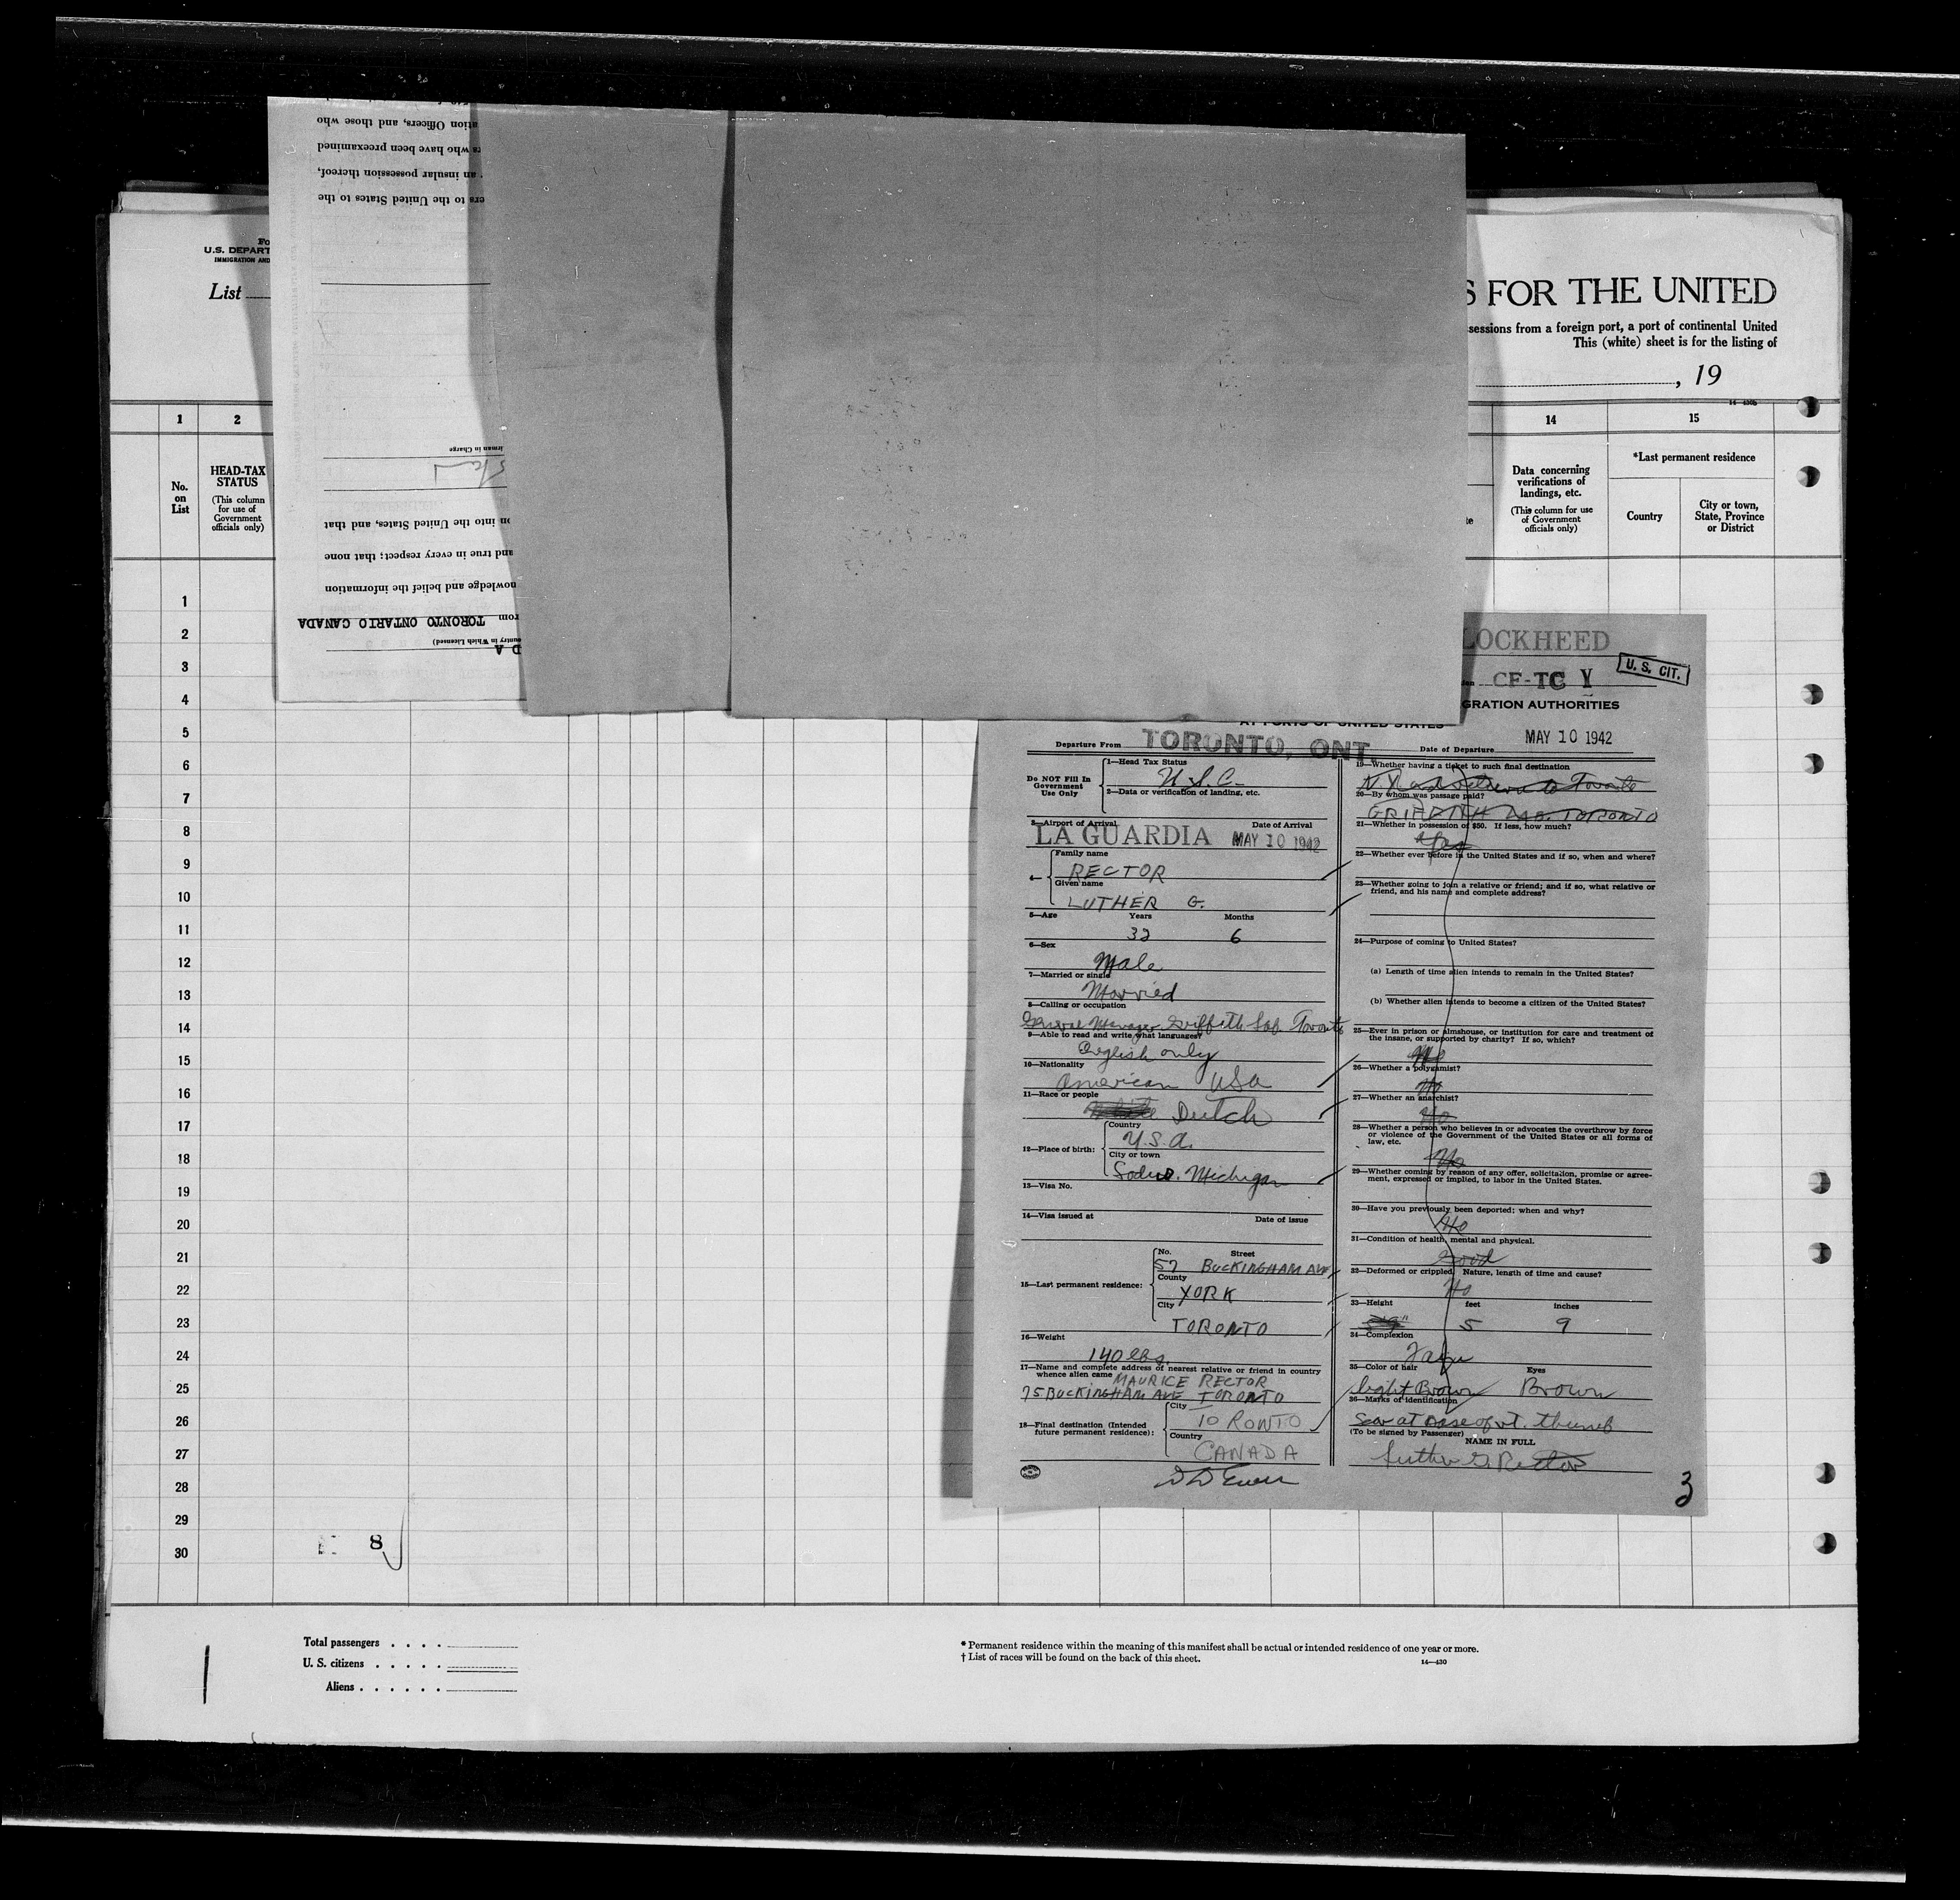 ation Officers, and those who
who have been preexamined
an insular possession thereof,
ers to the United States to the
irman in Charge
on into the United States, and that
and true in every respect; that none
nowledge and belief the information
rom TORONTO ONTARIO CANADA
ountry in Which Licensed)
D A
U.S. DEPART
IMMIGRATION AND
List
S FOR THE UNITED
sessions from a foreign port, a port of continental United
This (white) sheet is for the listing of
, 19
1 2 14 15
No. on List
HEAD-TAX STATUS
(This column for use of Government officials only)
Data concerning verifications of landings, etc.
(This column for use of Government officials only)
*Last permanent residence
Country
City or town, State, Province or District
1
2
3
4
5
6
7
8
9
10
11
12
13
14
15
16
17
18
19
20
21
22
23
24
25
26
27
28
29
30
8
LOCKHEED
U. S. CIT.
CF-TC V
GRATION AUTHORITIES
AT PORTS OF UNITED STATES
Departure From TORONTO, ONT.
Date of Departure MAY 10 1942
Do NOT Fill In
Government
Use Only
1—Head Tax Status
U.S.C.
2—Data or verification of landing, etc.
3—Airport of Arrival Date of Arrival
LA GUARDIA MAY 10 1942
4—
Family name
RECTOR
Given name
LUTHER G.
5—Age Years Months
32 6
6—Sex
Male
7—Married or single
Married
8—Calling or occupation
General Manager Griffith Lab. Toronto
9—Able to read and write what languages?
English only
10—Nationality
American USA
11—Race or people
Dutch
12—Place of birth:
Country
U.S.A.
City or town
Sodus, Michigan
13—Visa No.
14—Visa issued at Date of issue
15—Last permanent residence:
No. Street
57 BUCKINGHAM AVE
County
YORK
City
TORONTO
16—Weight
140 lbs.
17—Name and complete address of nearest relative or friend in country
whence alien came MAURICE RECTOR
75 BUCKINGHAM AVE TORONTO
18—Final destination (Intended
future permanent residence):
City
TORONTO
Country
CANADA
19—Whether having a ticket to such final destination
N.Y. and return to Toronto
20—By whom was passage paid?
GRIFFITH LAB. TORONTO
21—Whether in possession of $50. If less, how much?
Yes
22—Whether ever before in the United States and if so, when and where?
23—Whether going to join a relative or friend; and if so, what relative or
friend, and his name and complete address?
24—Purpose of coming to United States?
(a) Length of time alien intends to remain in the United States?
(b) Whether alien intends to become a citizen of the United States?
25—Ever in prison or almshouse, or institution for care and treatment of
the insane, or supported by charity? If so, which?
No
26—Whether a polygamist?
No
27—Whether an anarchist?
No
28—Whether a person who believes in or advocates the overthrow by force
or violence of the Government of the United States or all forms of
law, etc.
No
29—Whether coming by reason of any offer, solicitation, promise or agree-
ment, expressed or implied, to labor in the United States.
30—Have you previously been deported; when and why?
No
31—Condition of health, mental and physical.
Good
32—Deformed or crippled. Nature, length of time and cause?
No
33—Height feet inches
5 9
34—Complexion
35—Color of hair Eyes
Light Brown Brown
36—Marks of identification
Scar at base of rt. thumb
(To be signed by Passenger)
NAME IN FULL
Luther G. Rector
3
Total passengers
U. S. citizens
Aliens
* Permanent residence within the meaning of this manifest shall be actual or intended residence of one year or more.
† List of races will be found on the back of this sheet.
14—430